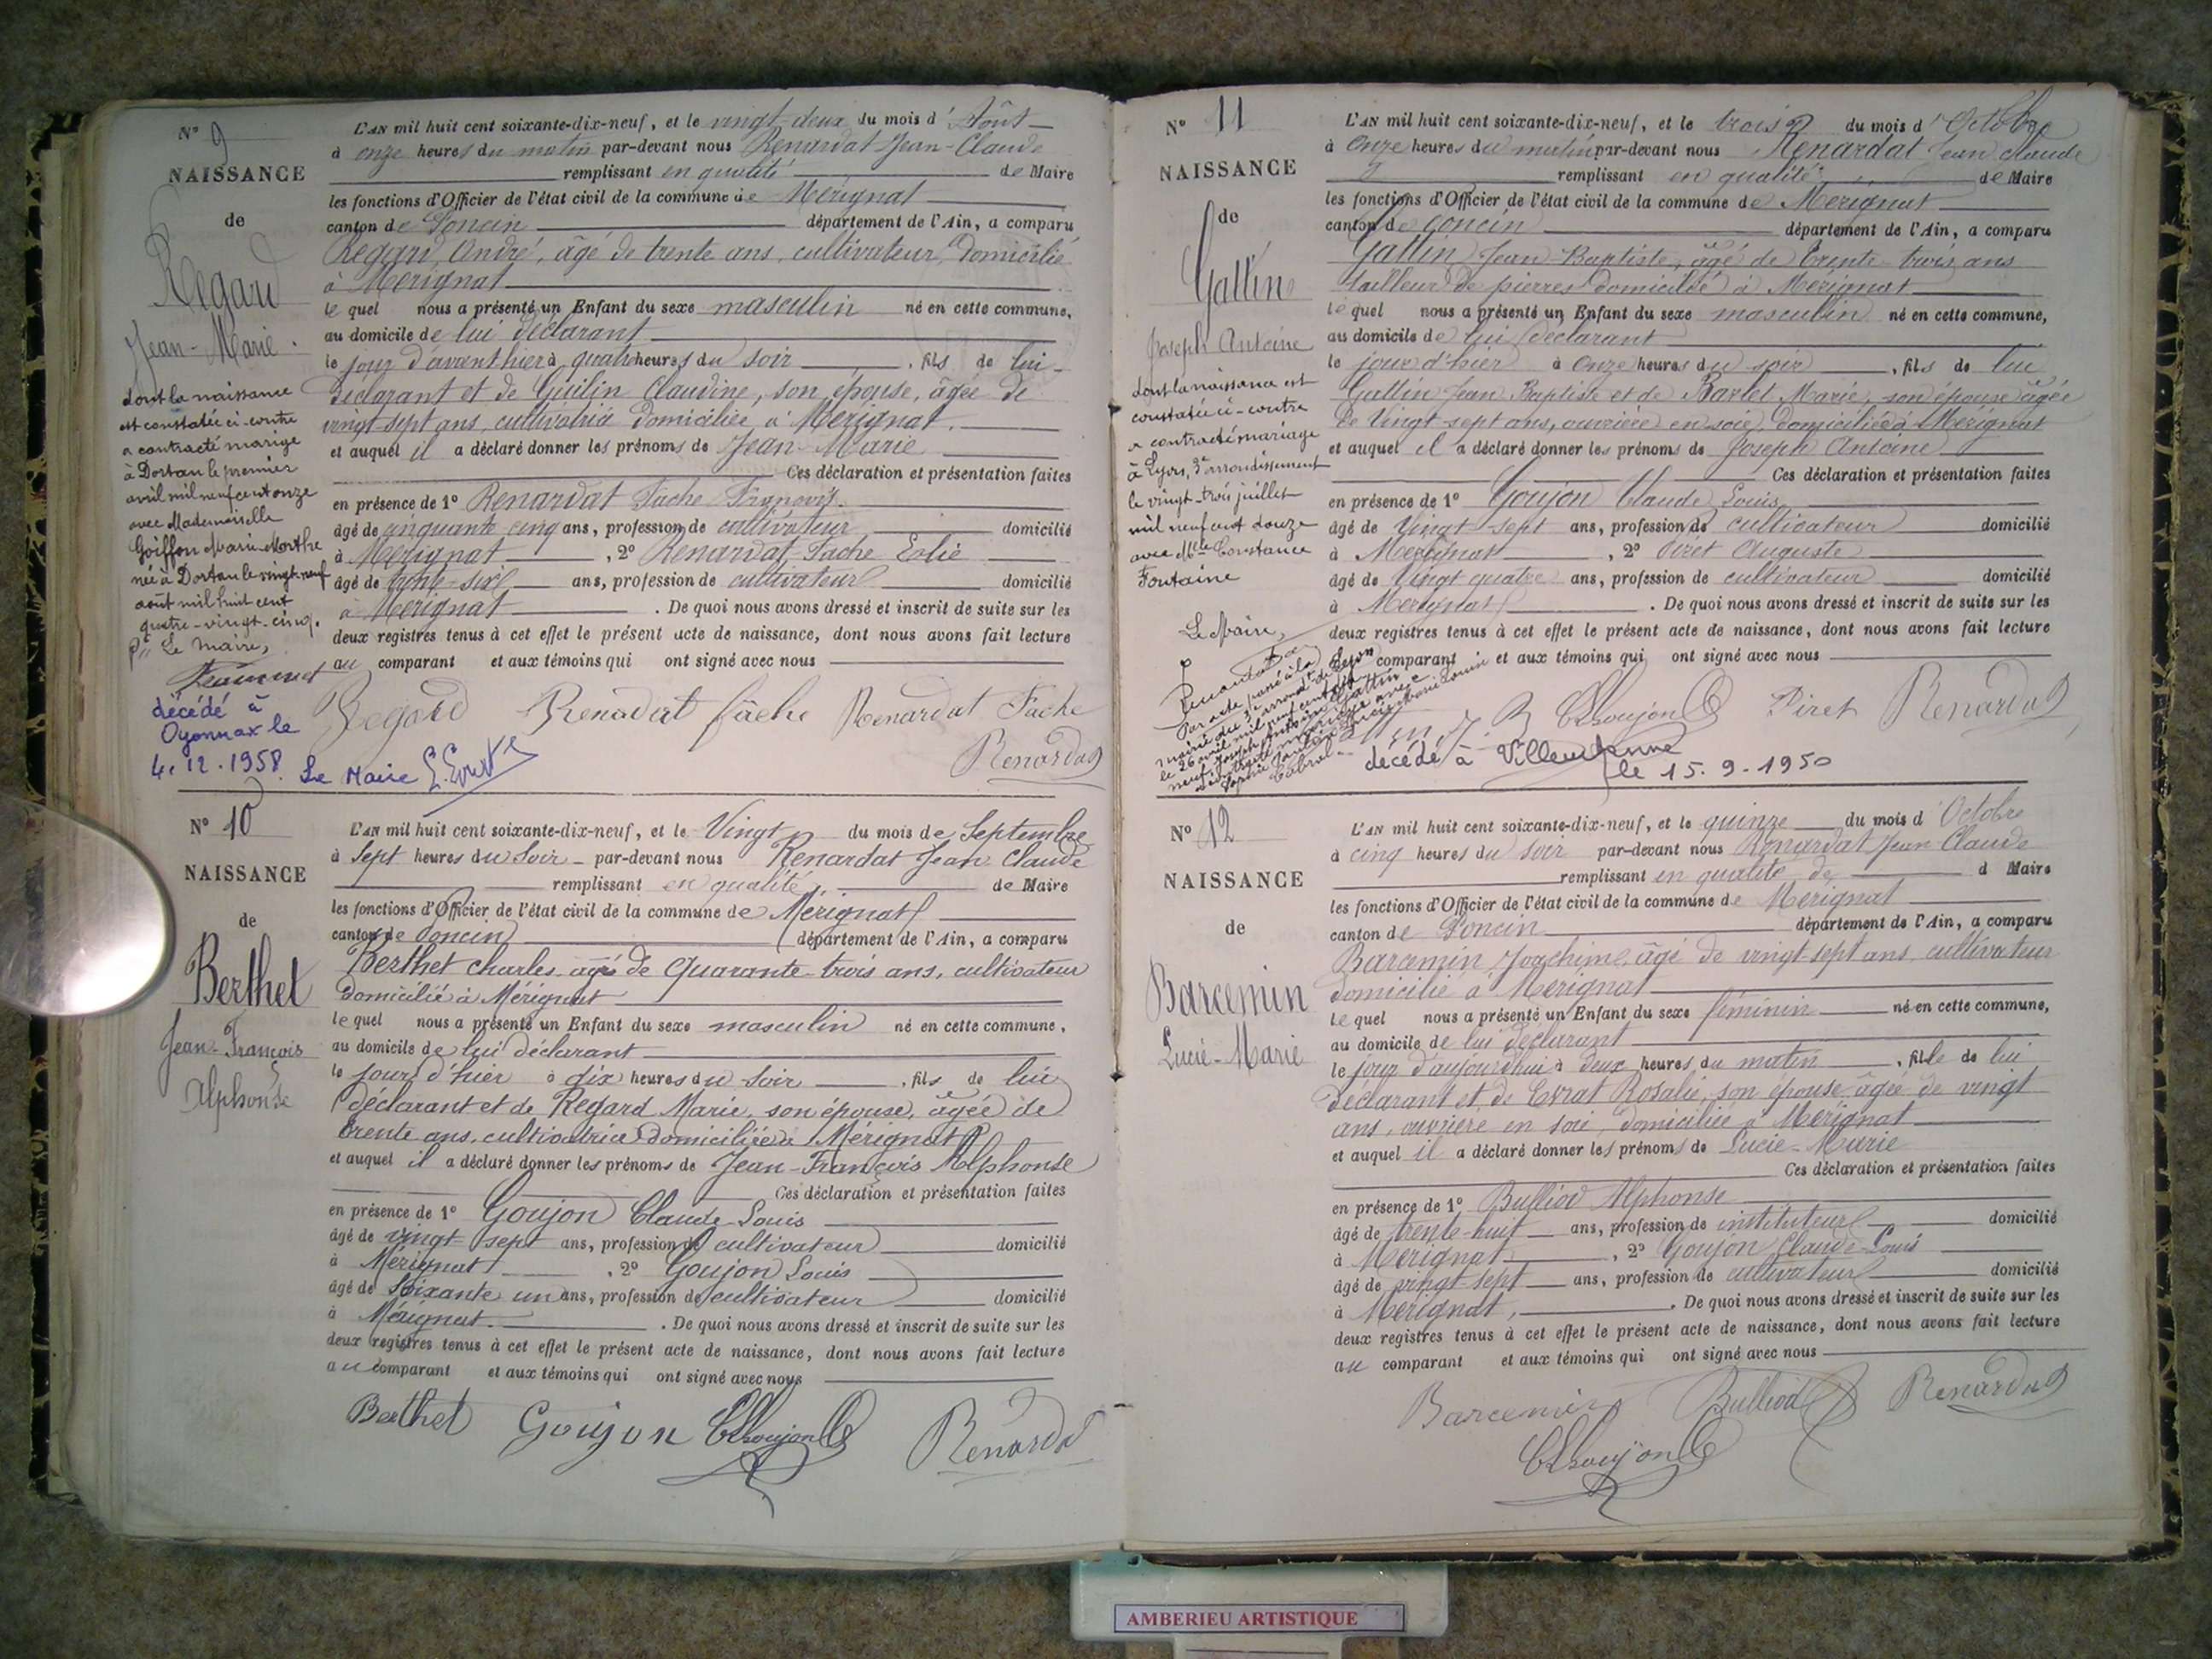 N° 9
NAISSANCE
de
Regard
Jean-Marie.
dont la naissance
est constatée ci-contre
a contracté mariage
à Dortan le premier
avril mil neuf cent onze
avec Mademoiselle
Goiffon Marie Marthe
née à Dortan le vingt-neuf
août mil huit cent
quatre-vingt-cinq.
Le Maire,
décédé à
Oyonnax le
4.12.1958. Le Maire
L'AN mil huit cent soixante-dix-neuf, et le vingt-deux du mois d'Août
à onze heures du matin par-devant nous Renardat Jean-Claude
remplissant en qualité de Maire
les fonctions d'Officier de l'état civil de la commune de Mérignat
canton de Poncin département de l'Ain, a comparu
Regard André, âgé de trente ans, cultivateur, domicilié
à Mérignat
le quel nous a présenté un Enfant du sexe masculin né en cette commune,
au domicile de lui déclarant
le jour d'avant hier à quatre heures du soir , fils de lui
déclarant et de Guilin Claudine, son épouse, âgée de
vingt sept ans, cultivatrice domiciliée à Mérignat.
et auquel il a déclaré donner les prénoms de Jean-Marie
Ces déclaration et présentation faites
en présence de 1° Renardat Fache François
âgé de cinquante cinq ans, profession de cultivateur domicilié
à Mérignat , 2° Renardat Fache Eolie
âgé de trente-six ans, profession de cultivateur domicilié
à Mérignat . De quoi nous avons dressé et inscrit de suite sur les
deux registres tenus à cet effet le présent acte de naissance, dont nous avons fait lecture
au comparant et aux témoins qui ont signé avec nous
Regard Renardat fache Renardat Fache
Renardat
N° 10
NAISSANCE
de
Berthet
Jean-François
Alphonse
L'AN mil huit cent soixante-dix-neuf, et le Vingt du mois de Septembre
à Sept heures du Soir par-devant nous Renardat Jean Claude
remplissant en qualité de Maire
les fonctions d'Officier de l'état civil de la commune de Mérignat
canton de Poncin département de l'Ain, a comparu
Berthet Charles, âgé de Quarante-trois ans, cultivateur
domicilié à Mérignat
le quel nous a présenté un Enfant du sexe masculin né en cette commune,
au domicile de lui déclarant
le jour d'hier à dix heures du Soir , fils de lui
déclarant et de Regard Marie, son épouse, âgée de
trente ans, cultivatrice domiciliée à Mérignat
et auquel il a déclaré donner les prénoms de Jean-François Alphonse
Ces déclaration et présentation faites
en présence de 1° Goujon Claude Louis
âgé de vingt-sept ans, profession de cultivateur domicilié
à Mérignat , 2° Goujon Louis
âgé de Soixante un ans, profession de cultivateur domicilié
à Mérignat. . De quoi nous avons dressé et inscrit de suite sur les
deux registres tenus à cet effet le présent acte de naissance, dont nous avons fait lecture
au comparant et aux témoins qui ont signé avec nous
Berthet Goujon CLGoujon Renardat
N° 11
NAISSANCE
de
Gallin
Joseph Antoine
dont la naissance est
constatée ci-contre
a contracté mariage
à Lyon, 3e arrondissement
le vingt-trois juillet
mil neuf cent douze
avec Mlle Constance
Fontaine
Le Maire,
décédé à Villeurbanne
le 15.9.1950
L'AN mil huit cent soixante-dix-neuf, et le trois du mois d'Octobre
à Onze heures du matin par-devant nous Renardat Jean Claude
remplissant en qualité de Maire
les fonctions d'Officier de l'état civil de la commune de Mérignat
canton de Poncin département de l'Ain, a comparu
Gallin Jean Baptiste, âgé de Trente trois ans
tailleur de pierres domicilié à Mérignat
le quel nous a présenté un Enfant du sexe masculin né en cette commune,
au domicile de lui déclarant
le jour d'hier à Onze heures du soir , fils de lui
Gallin Jean Baptiste et de Barlet Marie, son épouse âgée
de Vingt-sept ans, ouvrière en soie, domiciliée à Mérignat
et auquel il a déclaré donner les prénoms de Joseph Antoine
Ces déclaration et présentation faites
en présence de 1° Goujon Claude Louis
âgé de Vingt-sept ans, profession de cultivateur domicilié
à Mérignat , 2° Piret Auguste
âgé de Vingt quatre ans, profession de cultivateur domicilié
à Mérignat . De quoi nous avons dressé et inscrit de suite sur les
deux registres tenus à cet effet le présent acte de naissance, dont nous avons fait lecture
comparant et aux témoins qui ont signé avec nous
CLGoujon Piret Renardat
N° 12
NAISSANCE
de
Barcemin
Lucie-Marie
L'AN mil huit cent soixante-dix-neuf, et le quinze du mois d'Octobre
à cinq heures du soir par-devant nous Renardat Jean Claude
remplissant en qualité de d Maire
les fonctions d'Officier de l'état civil de la commune de Mérignat
canton de Poncin département de l'Ain, a comparu
Barcemin Joachim, âgé de vingt-sept ans, cultivateur
domicilié à Mérignat
le quel nous a présenté un Enfant du sexe féminin né en cette commune,
au domicile de lui déclarant
le jour d'aujourd'hui à deux heures du matin , fille de lui
déclarant et de Evrat Rosalie, son épouse âgée de vingt
ans, ouvrière en soie, domiciliée à Mérignat
et auquel il a déclaré donner les prénoms de Lucie-Marie
Ces déclaration et présentation faites
en présence de 1° Bulliod Alphonse
âgé de trente-huit ans, profession de instituteur domicilié
à Mérignat , 2° Goujon Claude-Louis
âgé de vingt-sept ans, profession de cultivateur domicilié
à Mérignat, . De quoi nous avons dressé et inscrit de suite sur les
deux registres tenus à cet effet le présent acte de naissance, dont nous avons fait lecture
au comparant et aux témoins qui ont signé avec nous
Barcemin Bulliod Renardat
CLGoujon
AMBERIEU ARTISTIQUE